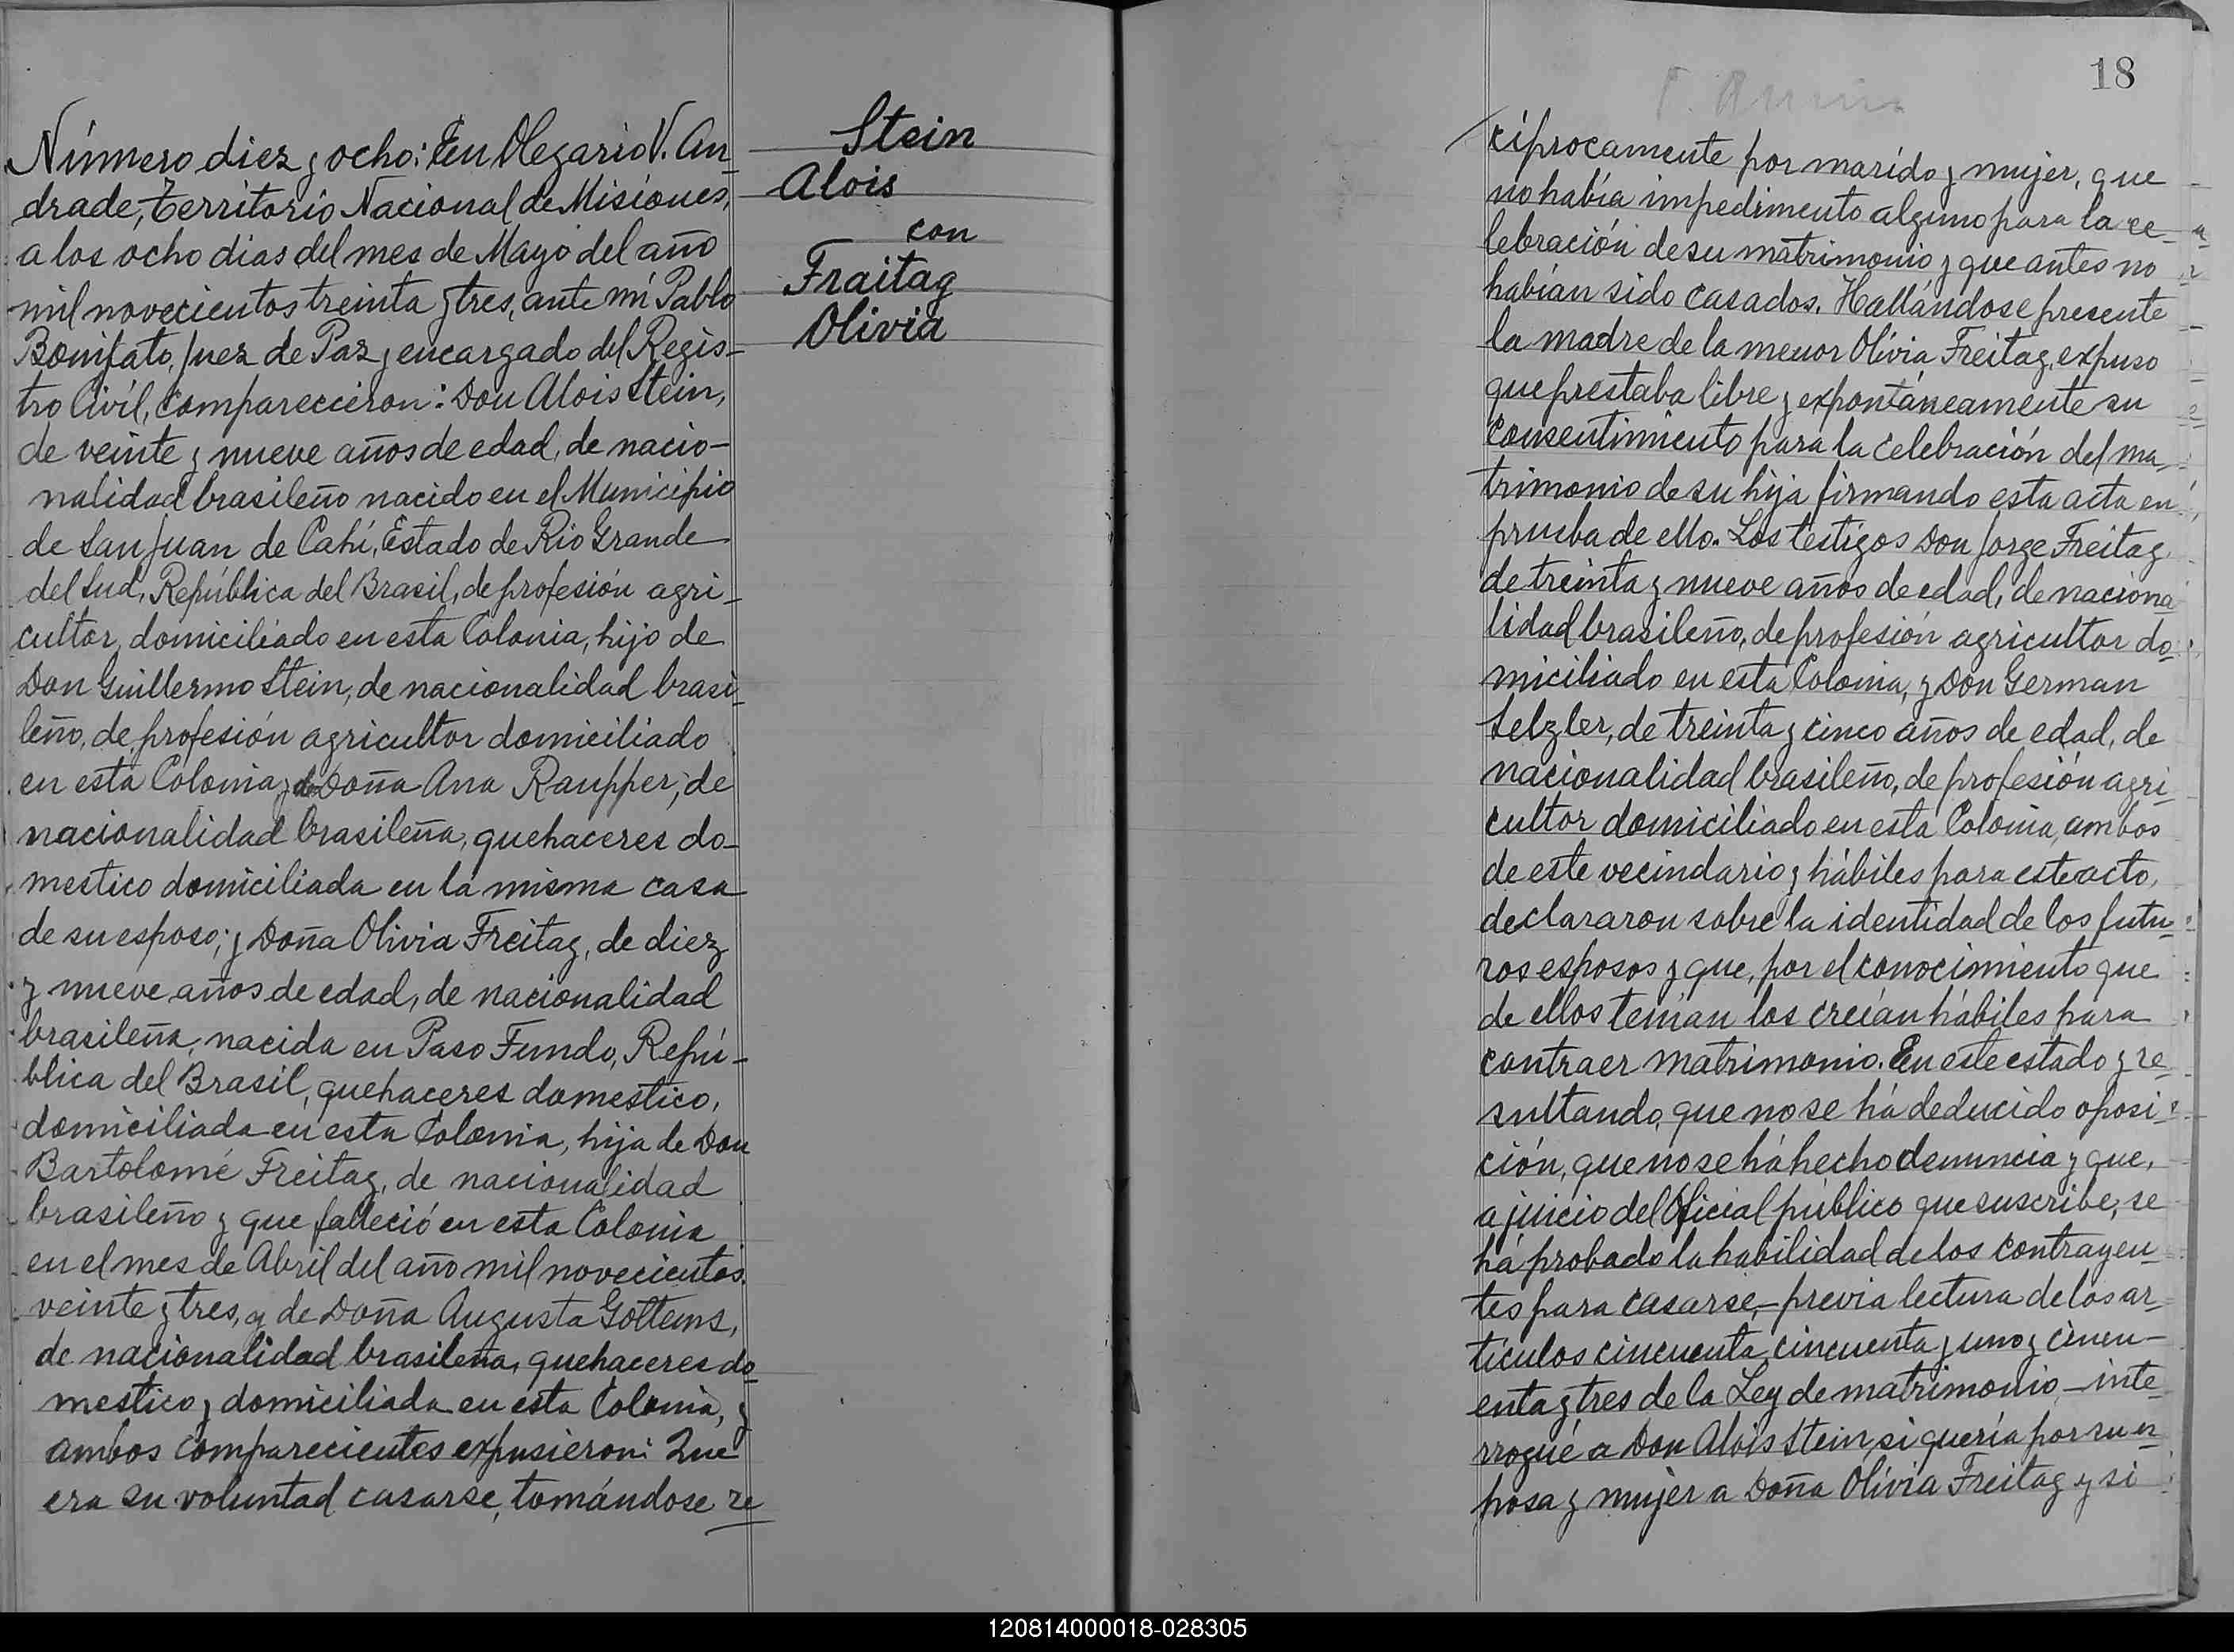 Número diez y ocho: En Olegario V. An-
drade, Territorio Nacional de Misiones,
a los ocho dias del mes de Mayo del año
mil novecientos treinta y tres, ante mí Pablo
Bonifato, Juez de Paz y encargado del Regis-
tro Civil, comparecieron: Don Alois Stein,
de veinte y nueve años de edad, de nacio-
nalidad brasileño nacido en el Municipio
de San Juan de Cahí, Estado de Rio Grande
del Sud, República del Brasil, de profesión agri-
cultor, domiciliado en esta Colonia, hijo de
Don Guillermo Stein, de nacionalidad brasi-
leño, de profesión agricultor domiciliado
en esta Colonia y de Doña Ana Raupper, de
nacionalidad brasileña, quehaceres do-
mestico domiciliada en la misma casa
de su esposo; y Doña Olivia Freitag, de diez
y nueve años de edad, de nacionalidad
brasileña, nacida en Paso Fundo, Repú-
blica del Brasil, quehaceres domestico,
domiciliada en esta Colonia, hija de Don
Bartolomé Freitag, de nacionalidad
brasileño y que falleció en esta Colonia
en el mes de Abril del año mil novecientos
veinte y tres, y de Doña Augusta Gottems,
de nacionalidad brasileña, quehaceres do-
mestico y domiciliada en esta Colonia, y
ambos comparecientes expusieron: Que
era su voluntad casarse, tomándose re
Stein
Alois
con
Fraitag
Olivia
18
ciprocamente por marido y mujer, que
no había impedimento alguno para la ce-
lebración de su matrimonio y que antes no
habían sido casados. Hallándose presente
la madre de la menor Olivia Freitag, expuso
que prestaba libre y expontáneamente su
consentimiento para la celebración del ma-
trimonio de su hija firmando esta acta en
prueba de ello. Los testigos Don Jorge Freitag
de treinta y nueve años de edad, de naciona
lidad brasileño, de profesión agricultor do-
miciliado en esta Colonia, y Don German
Selzler, de treinta y cinco años de edad, de
nacionalidad brasileño, de profesión agri-
cultor domiciliado en esta Colonia, ambos
de este vecindario y hábiles para este acto,
declararon sobre la identidad de los futu-
ros esposos y que, por el conocimiento que
de ellos tenían los creían hábiles para
contraer matrimonio. En este estado y re-
sultando, que no se há deducido oposi-
ción, que no se há hecho denuncia y que,
a juicio del Oficial público que suscribe, se
há probado la habilidad de los contrayen-
tes para casarse, - previa lectura de los ar-
tículos cincuenta, cincuenta y uno y cincu-
enta y tres de la Ley de matrimonio - inte-
rrogué a Don Alois Stein, si quería por su es
posa y mujer a Doña Olivia Freitag y si
120814000018-028305